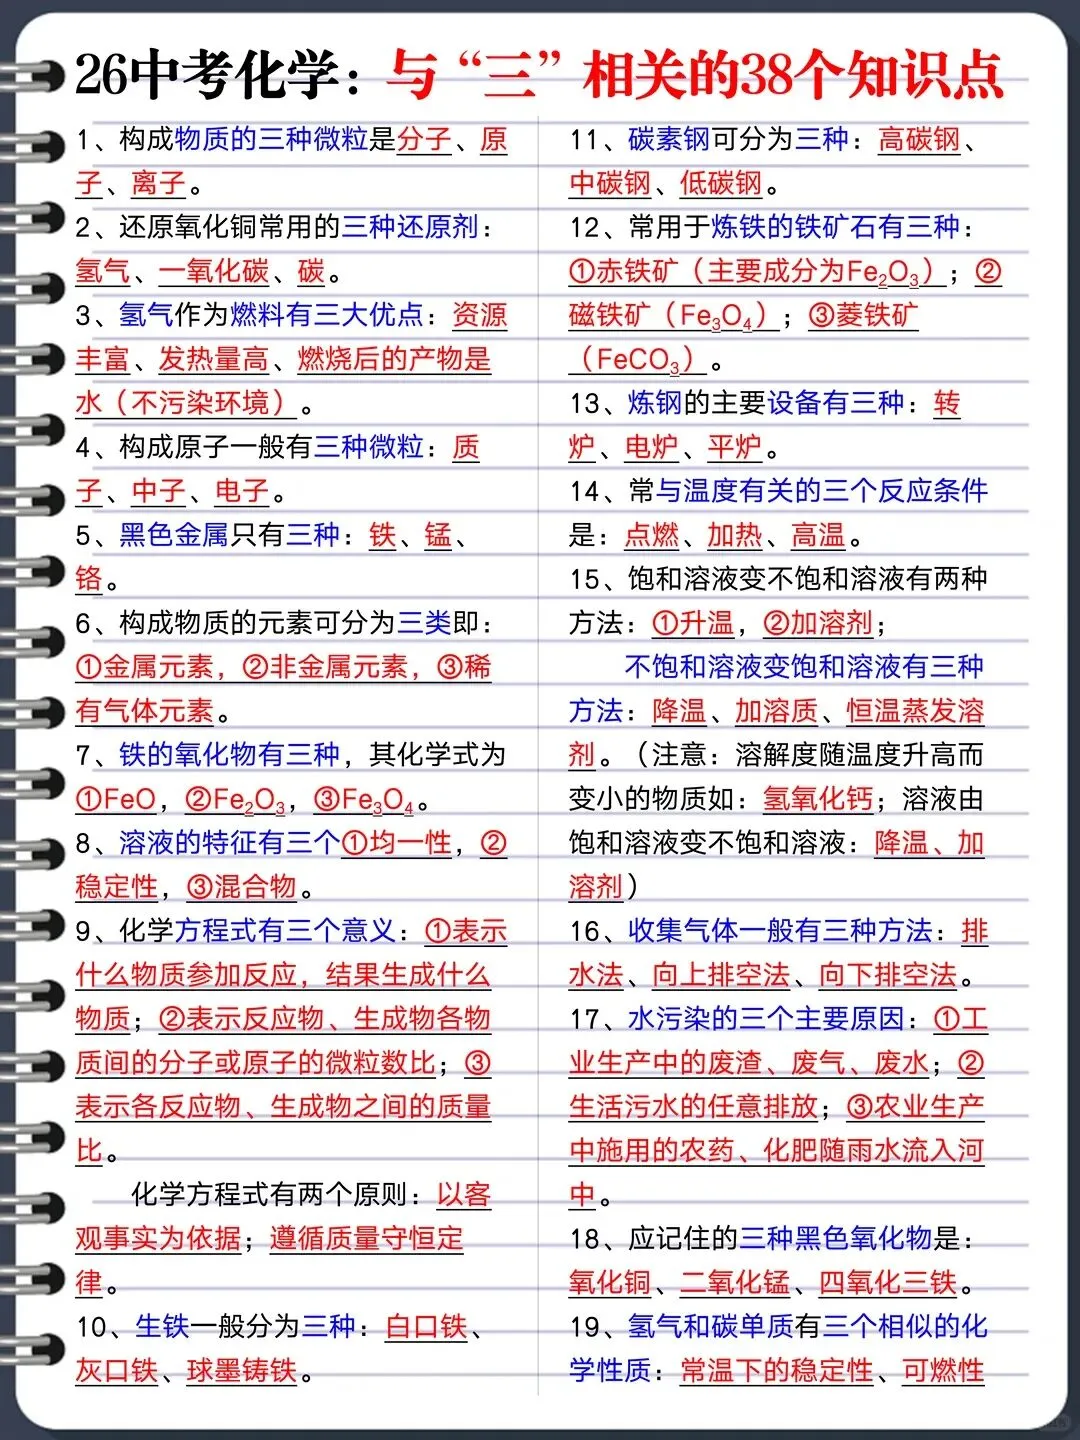 26中考化学：与“三”相关的38个知识点
1、构成物质的三种微粒是分子、原
子、离子。
2、还原氧化铜常用的三种还原剂：
氢气、一氧化碳、碳。
3、氢气作为燃料有三大优点：资源
丰富、发热量高、燃烧后的产物是
水（不污染环境）。
4、构成原子一般有三种微粒：质
子、中子、电子。
5、黑色金属只有三种：铁、锰、
铬。
6、构成物质的元素可分为三类即：
①金属元素，②非金属元素，③稀
有气体元素。
7、铁的氧化物有三种，其化学式为
①FeO，②Fe₂O₃，③Fe₃O₄。
8、溶液的特征有三个①均一性，②
稳定性，③混合物。
9、化学方程式有三个意义：①表示
什么物质参加反应，结果生成什么
物质；②表示反应物、生成物各物
质间的分子或原子的微粒数比；③
表示各反应物、生成物之间的质量
比。
化学方程式有两个原则：以客
观事实为依据；遵循质量守恒定
律。
10、生铁一般分为三种：白口铁、
灰口铁、球墨铸铁。
11、碳素钢可分为三种：高碳钢、
中碳钢、低碳钢。
12、常用于炼铁的铁矿石有三种：
①赤铁矿（主要成分为Fe₂O₃）；②
磁铁矿（Fe₃O₄）；③菱铁矿
（FeCO₃）。
13、炼钢的主要设备有三种：转
炉、电炉、平炉。
14、常与温度有关的三个反应条件
是：点燃、加热、高温。
15、饱和溶液变不饱和溶液有两种
方法：①升温，②加溶剂；
不饱和溶液变饱和溶液有三种
方法：降温、加溶质、恒温蒸发溶
剂。（注意：溶解度随温度升高而
变小的物质如：氢氧化钙；溶液由
饱和溶液变不饱和溶液：降温、加
溶剂）
16、收集气体一般有三种方法：排
水法、向上排空法、向下排空法。
17、水污染的三个主要原因：①工
业生产中的废渣、废气、废水；②
生活污水的任意排放；③农业生产
中施用的农药、化肥随雨水流入河
中。
18、应记住的三种黑色氧化物是：
氧化铜、二氧化锰、四氧化三铁。
19、氢气和碳单质有三个相似的化
学性质：常温下的稳定性、可燃性